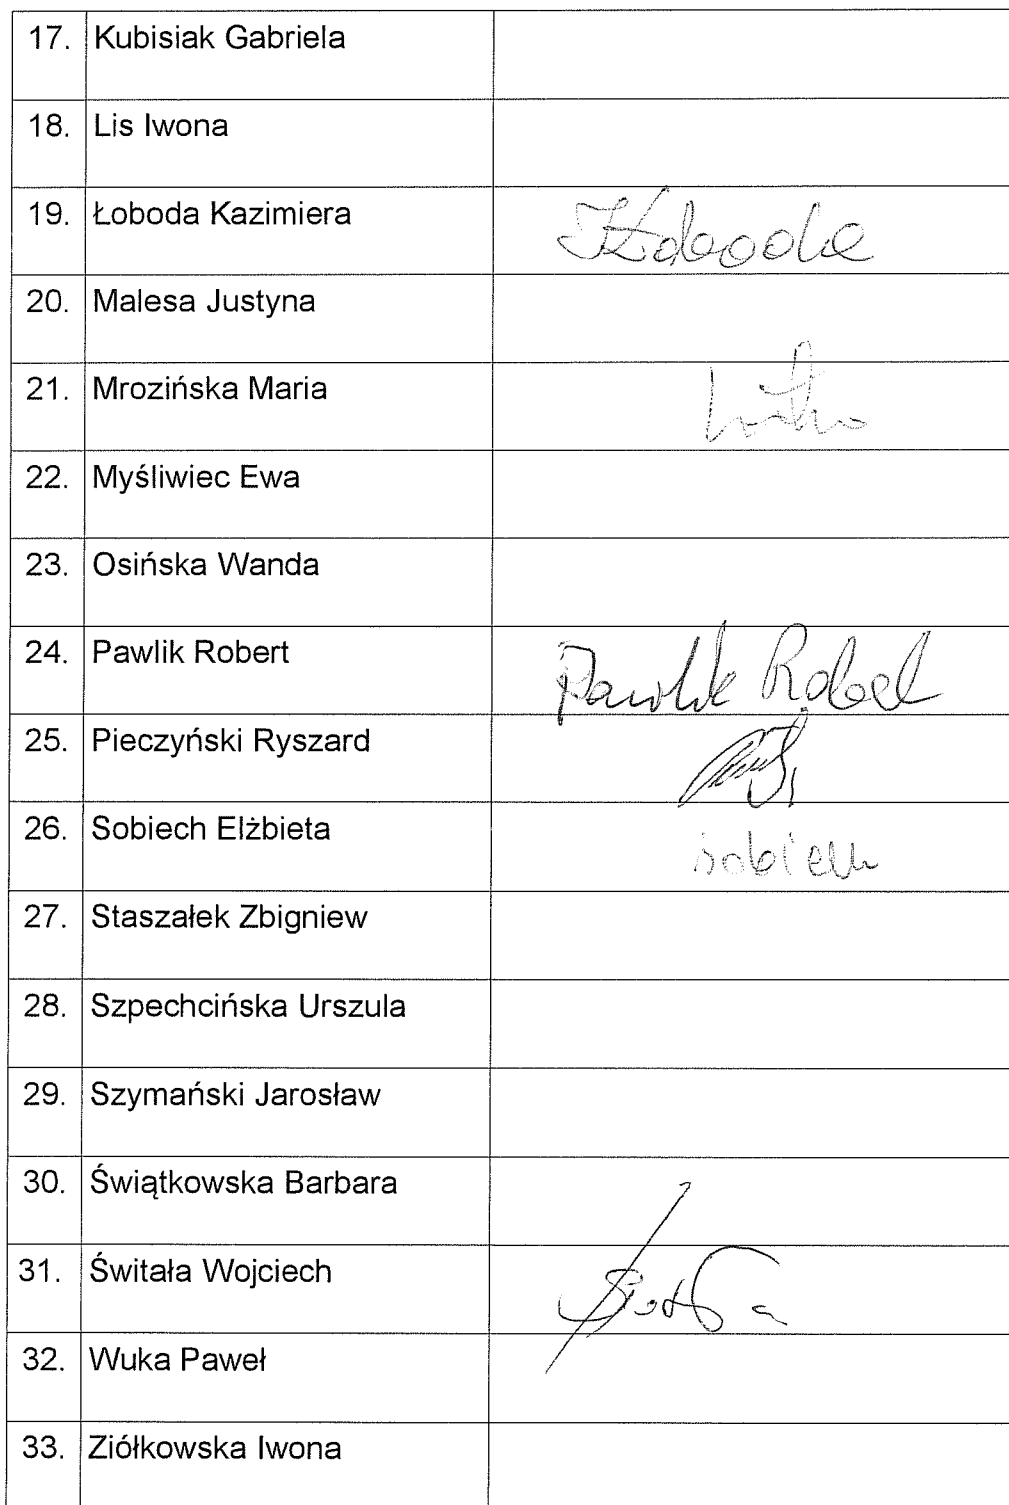 17. Kubisiak Gabriela
18. Lis Iwona
19. Łoboda Kazimiera
20. Malesa Justyna
21. Mrozińska Maria
22. Myśliwiec Ewa
23. Osińska Wanda
24. Pawlik Robert Pawlik Robert
25. Pieczyński Ryszard
26. Sobiech Elżbieta sobiech
27. Staszałek Zbigniew
28. Szpechcińska Urszula
29. Szymański Jarosław
30. Świątkowska Barbara
31. Świtała Wojciech
32. Wuka Paweł
33. Ziółkowska Iwona